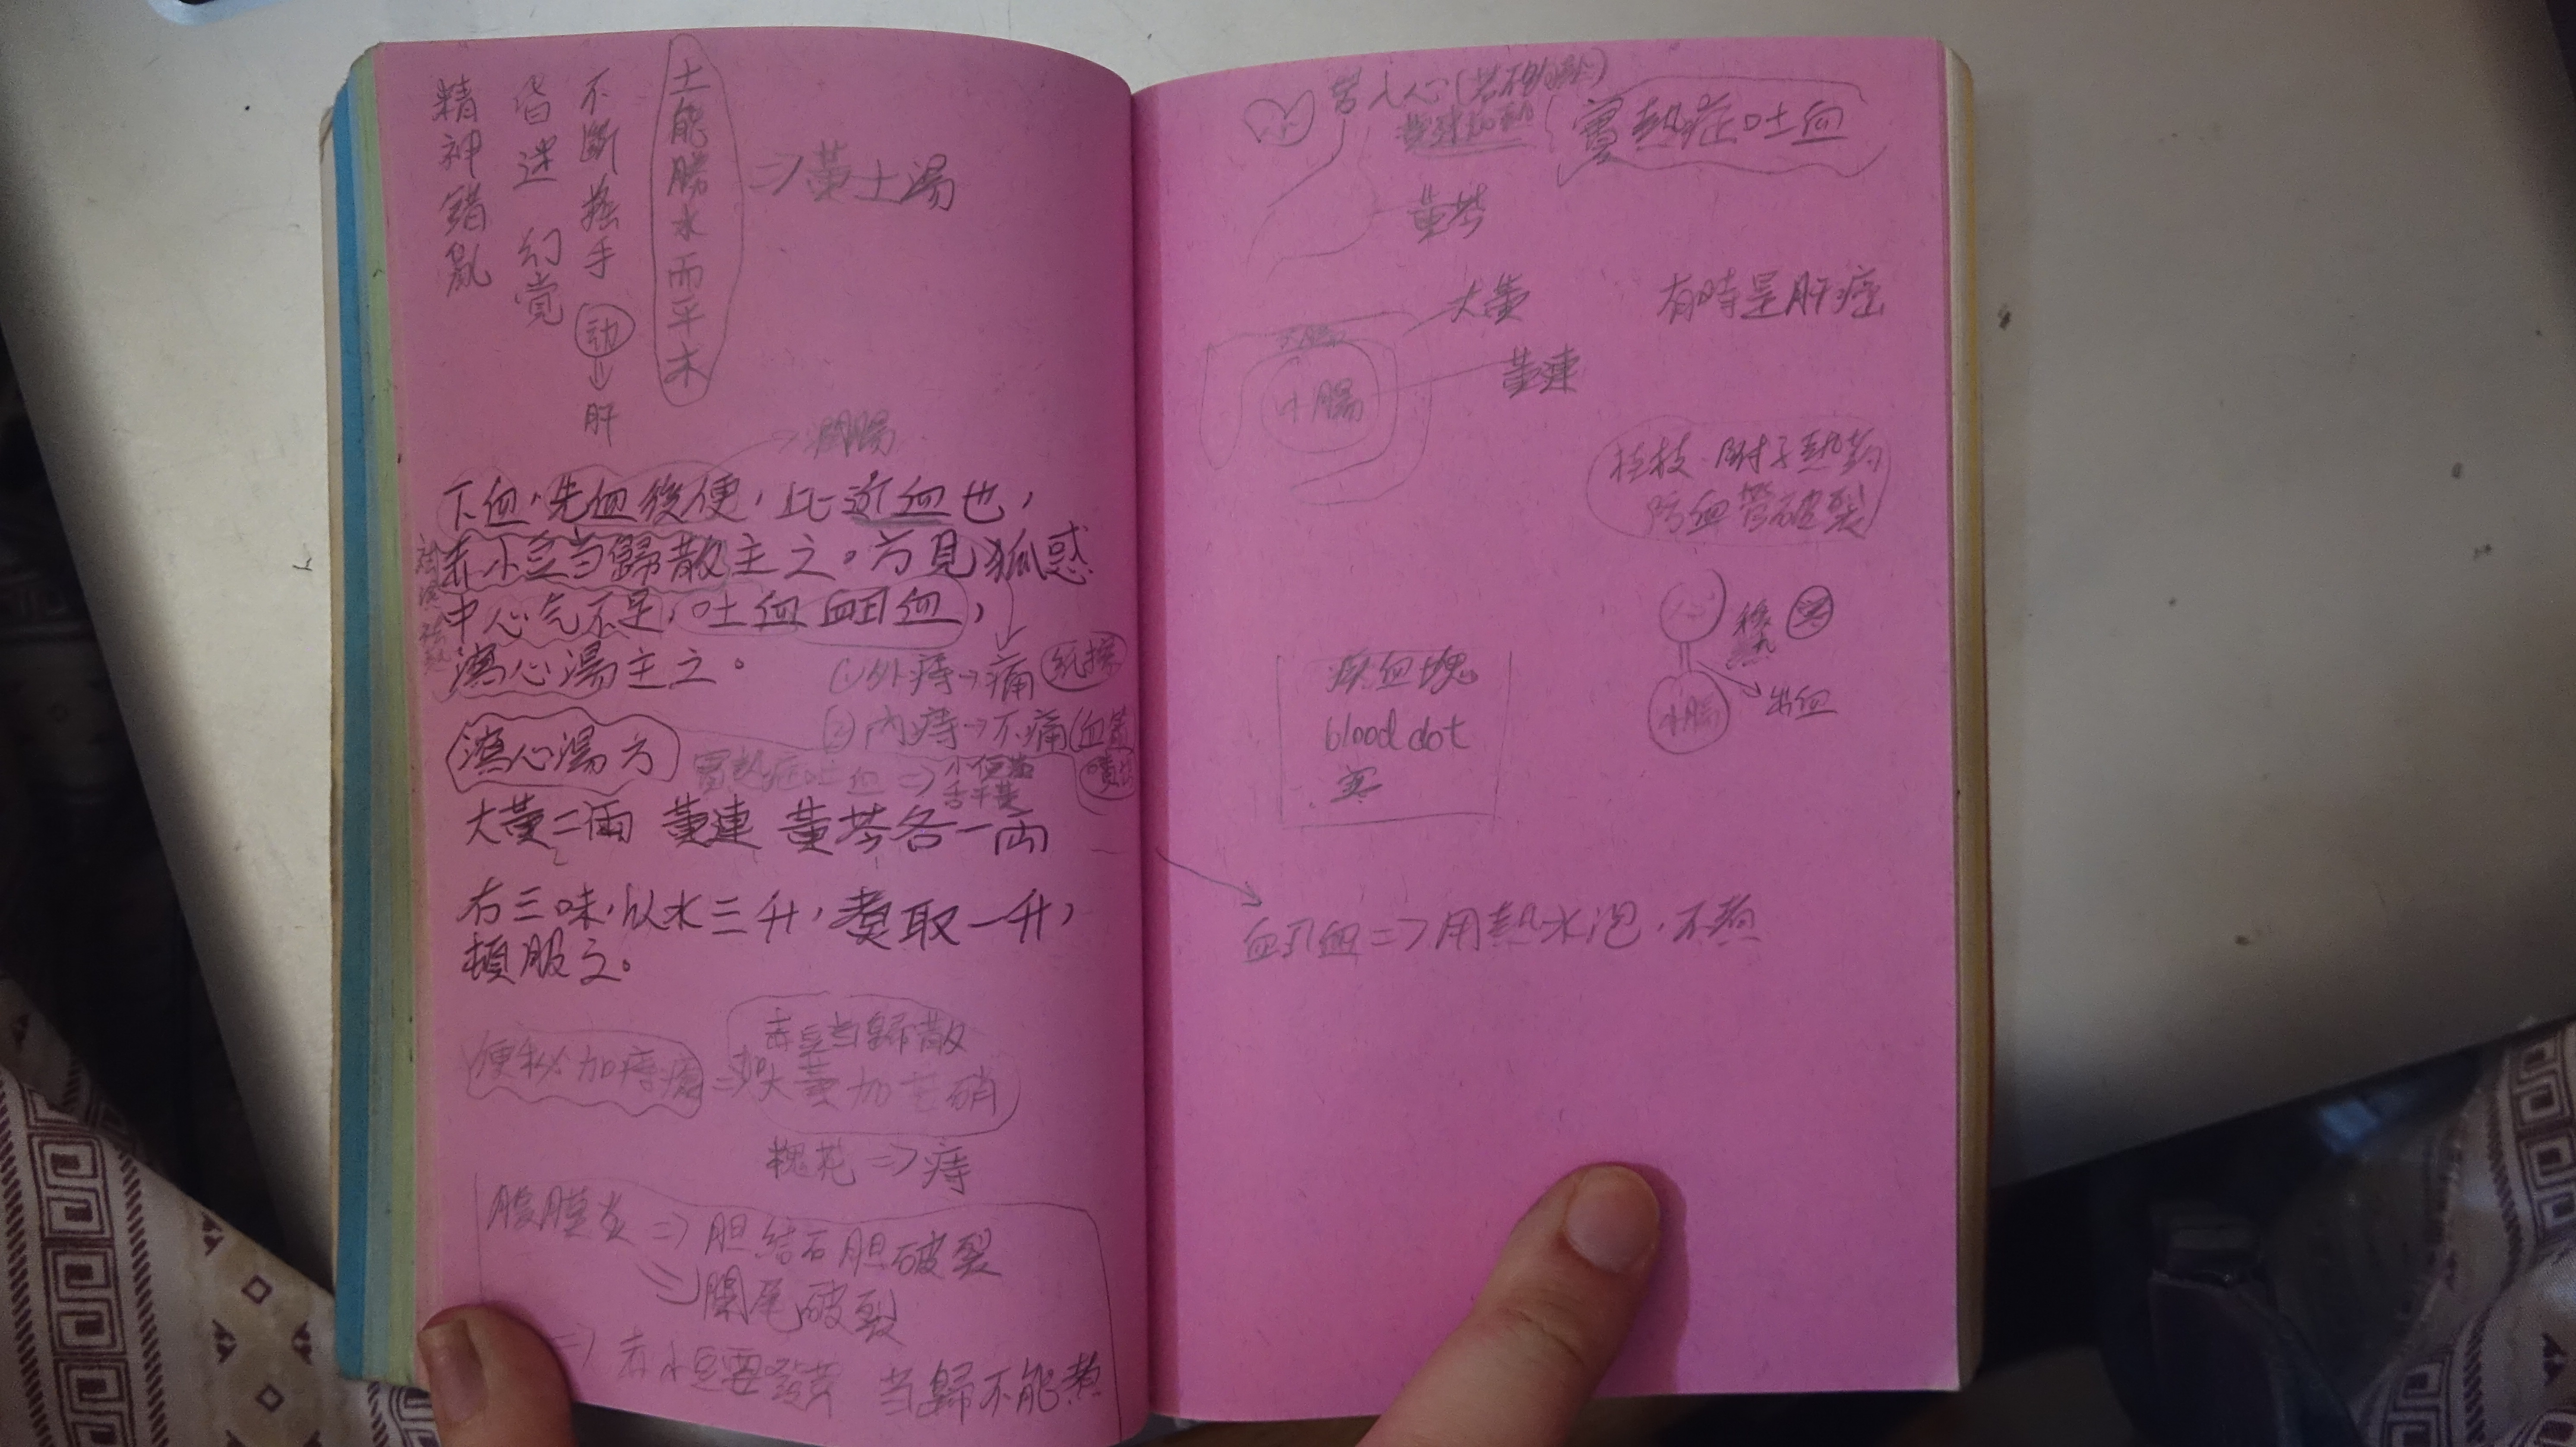 精神錯亂
昏迷 幻覚
不斷搖手
動
肝
土能勝水而平木
⇒黃土湯
下血,先血後便,此近血也,
赤小豆当歸散主之。方見狐惑
中心气不足,吐血衄血,
瀉心湯主之。
(1)外痔→痛 紙擦
(2)內痔→不痛(血管
噴出
瀉心湯方
實熱症吐血⇒
大黃二両 黃連 黃芩各一両
右三味,以水三升,煑取一升,
頓服之。
便秘加痔瘡⇒
赤豆当歸散
加大黃加芒硝
槐花⇒痔
腹膜炎⇒胆結石胆破裂
⇒闌尾破裂
⇒赤小豆要發芽 当歸不能煮
苦入心
實熱症吐血
黃芩
大黃
有時是肝癌
大腸
小腸
黃連
桂枝、附子熱药
防血管破裂
心
移熱 実
小腸
出血
瘀血塊
blood dot
実
衄血⇒用熱水泡,不煮